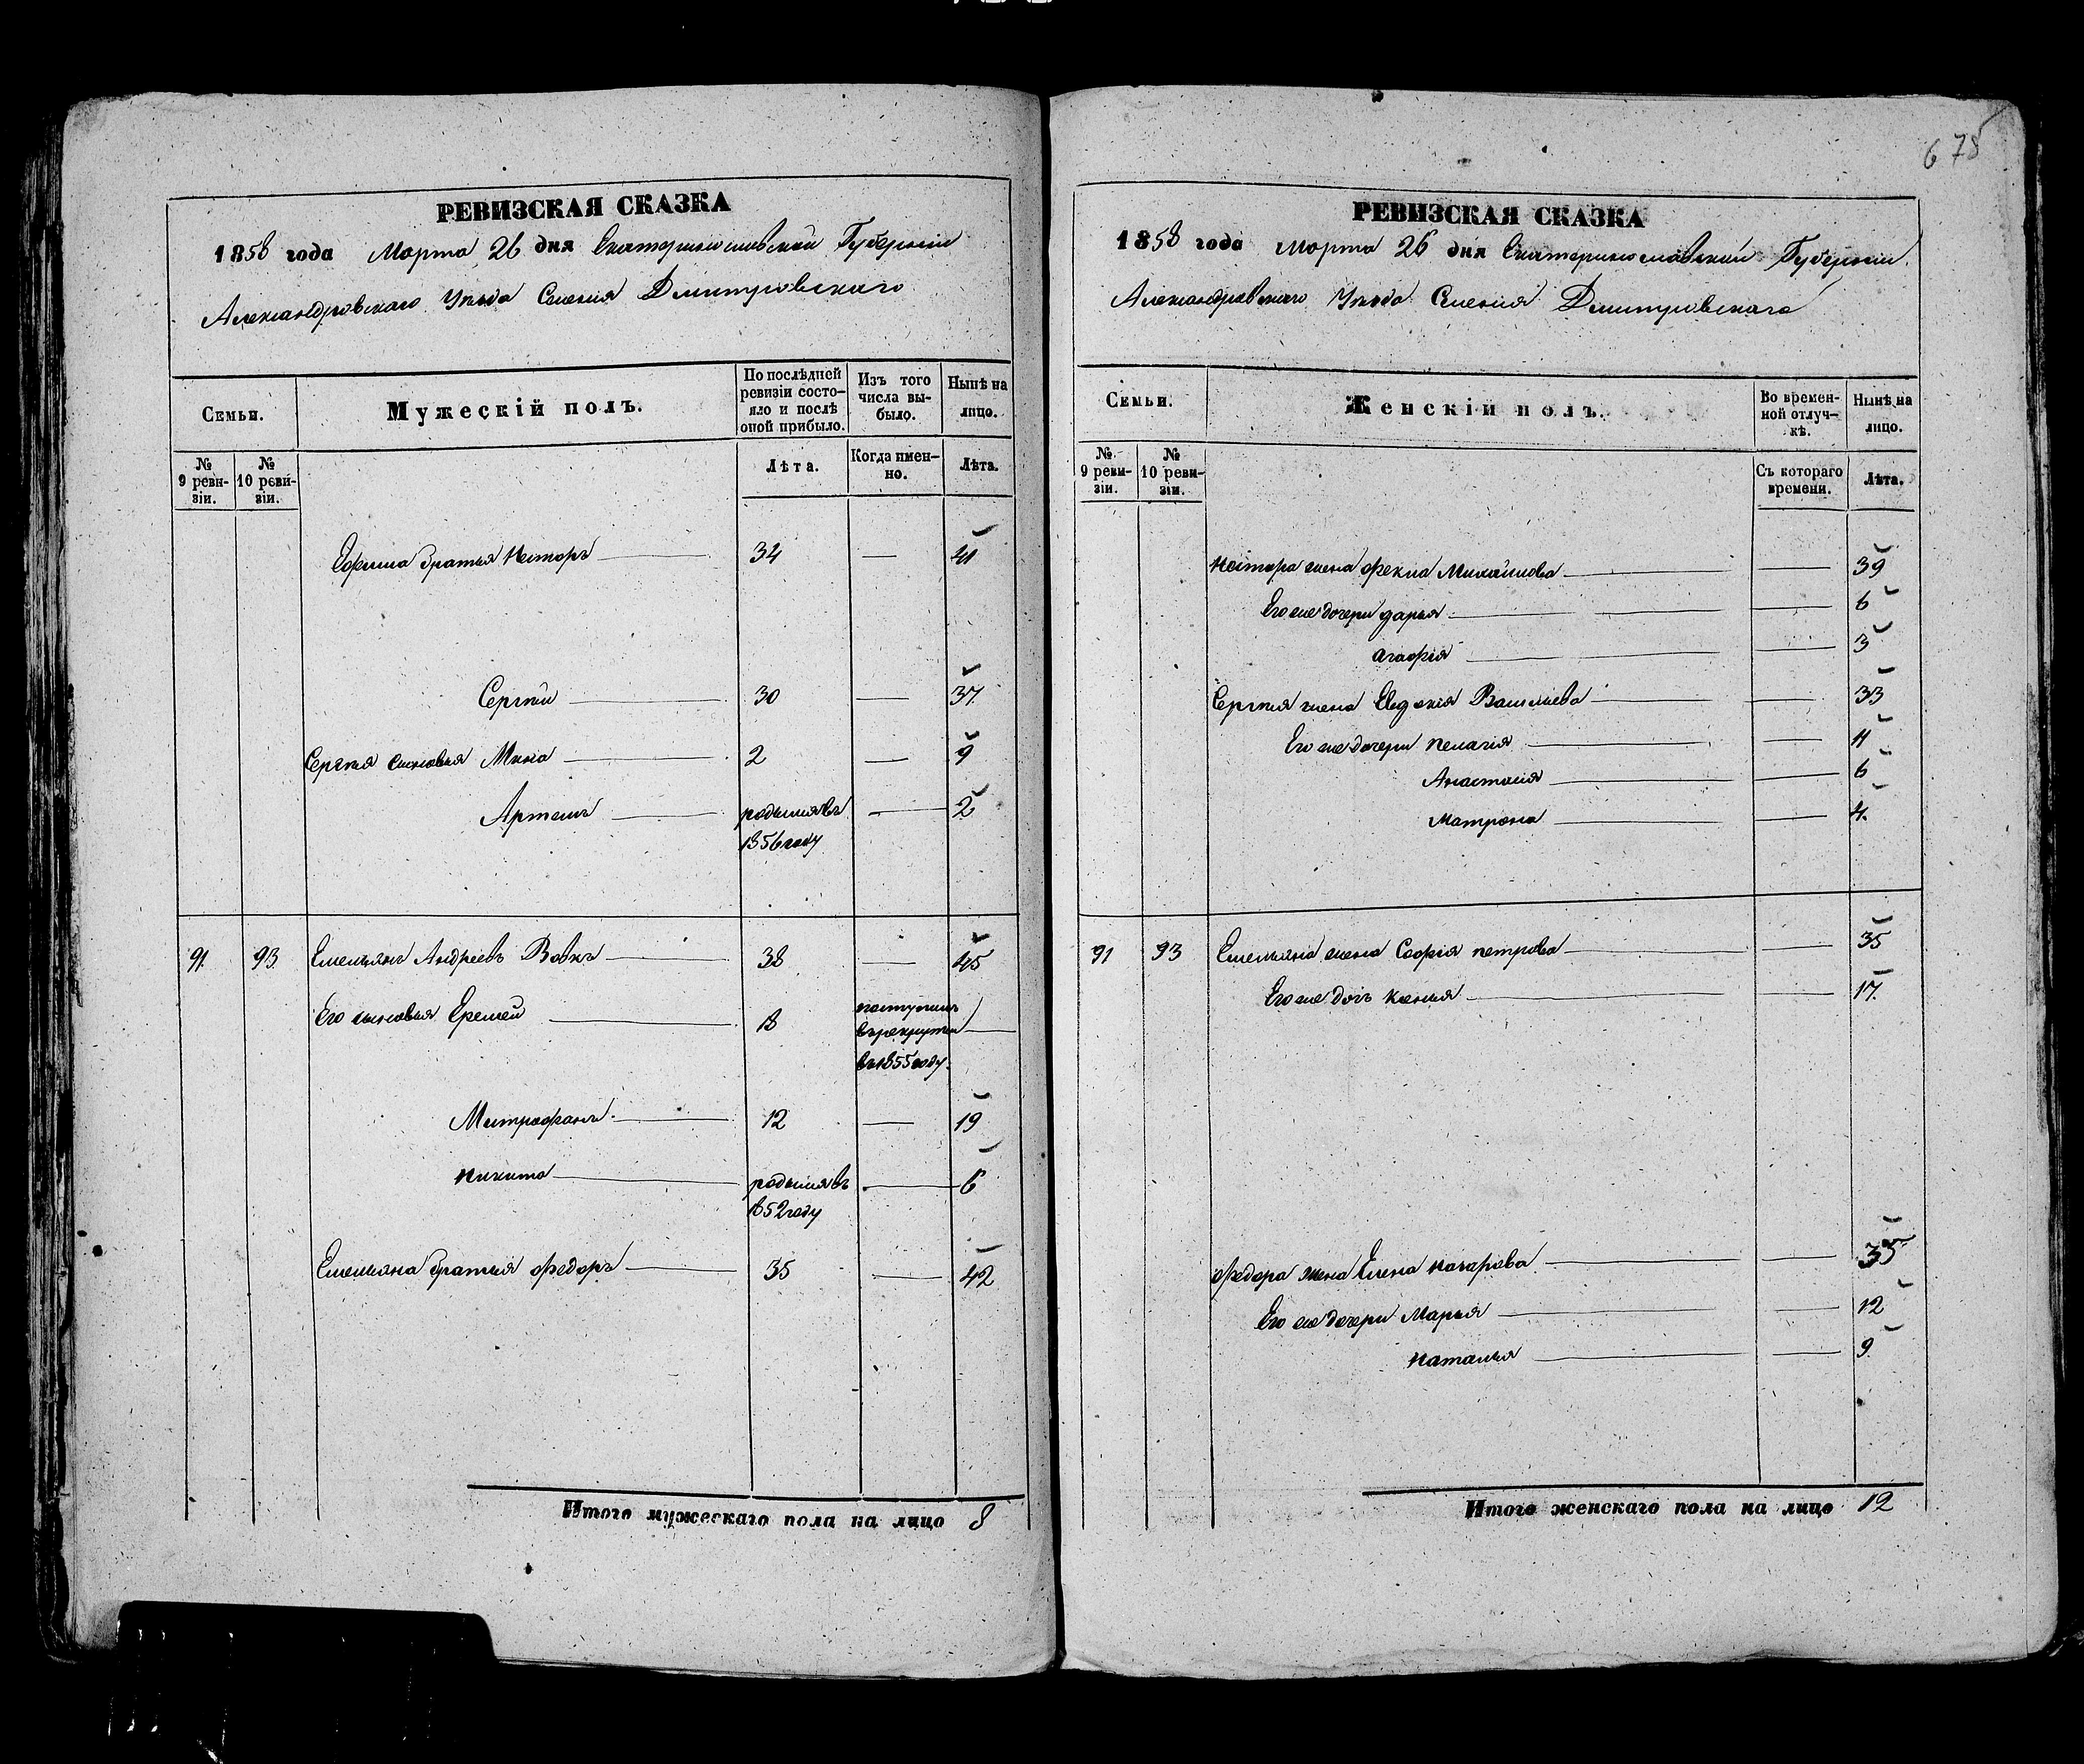 678
РЕВИЗСКАЯ СКАЗКА
1858 года Марта 26 дня Екатеринославской Губерніи
Александровскаго Уѣзда Селенія Дмитровскаго
Семьи. Мужескій полъ. По послѣдней ревизіи состояло и послѣ оной прибыло. Изъ того числа выбыло. Нынѣ на лицо.
№ 9 ревизіи. № 10 ревизіи. Лѣта. Когда именно. Лѣта.
Ефима братья Несторъ 34 — 41
Сергѣй 30 — 37
Сергѣя сыновья Мина 2 — 9
Артемъ родился въ 1856 году — 2
91. 93. Емельянъ Андреевъ Вовкъ 38 — 45
Его сыновья Еремей 18 поступилъ въ рекруты въ 1855 году. —
Митрофанъ 12 — 19
Никита родился въ 1852 году — 6
Емельяна братья Федоръ 35 — 42
Итого мужескаго пола на лицо 8
РЕВИЗСКАЯ СКАЗКА
1858 года Марта 26 дня Екатеринославской Губерніи
Александровскаго Уѣзда Селенія Дмитровскаго
Семьи. Женскій полъ. Во временной отлучкѣ. Нынѣ на лицо.
№ 9 ревизіи. № 10 ревизіи. Съ котораго времени. Лѣта.
Нестора жена Фекла Михайлова — 39
Его же дочери Дарья — 6
Агафія — 3
Сергѣя жена Евдокія Васильева — 33
Его же дочери Пелагія — 11
Анастасія — 6
Матрона — 4
91 93 Емельяна жена Софія Петрова — 35
Его же дочь Ксенія — 17
Федора жена Елена Назарова — 35
Его же дочери Марья — 12
Наталья — 9
Итого женскаго пола на лицо 12